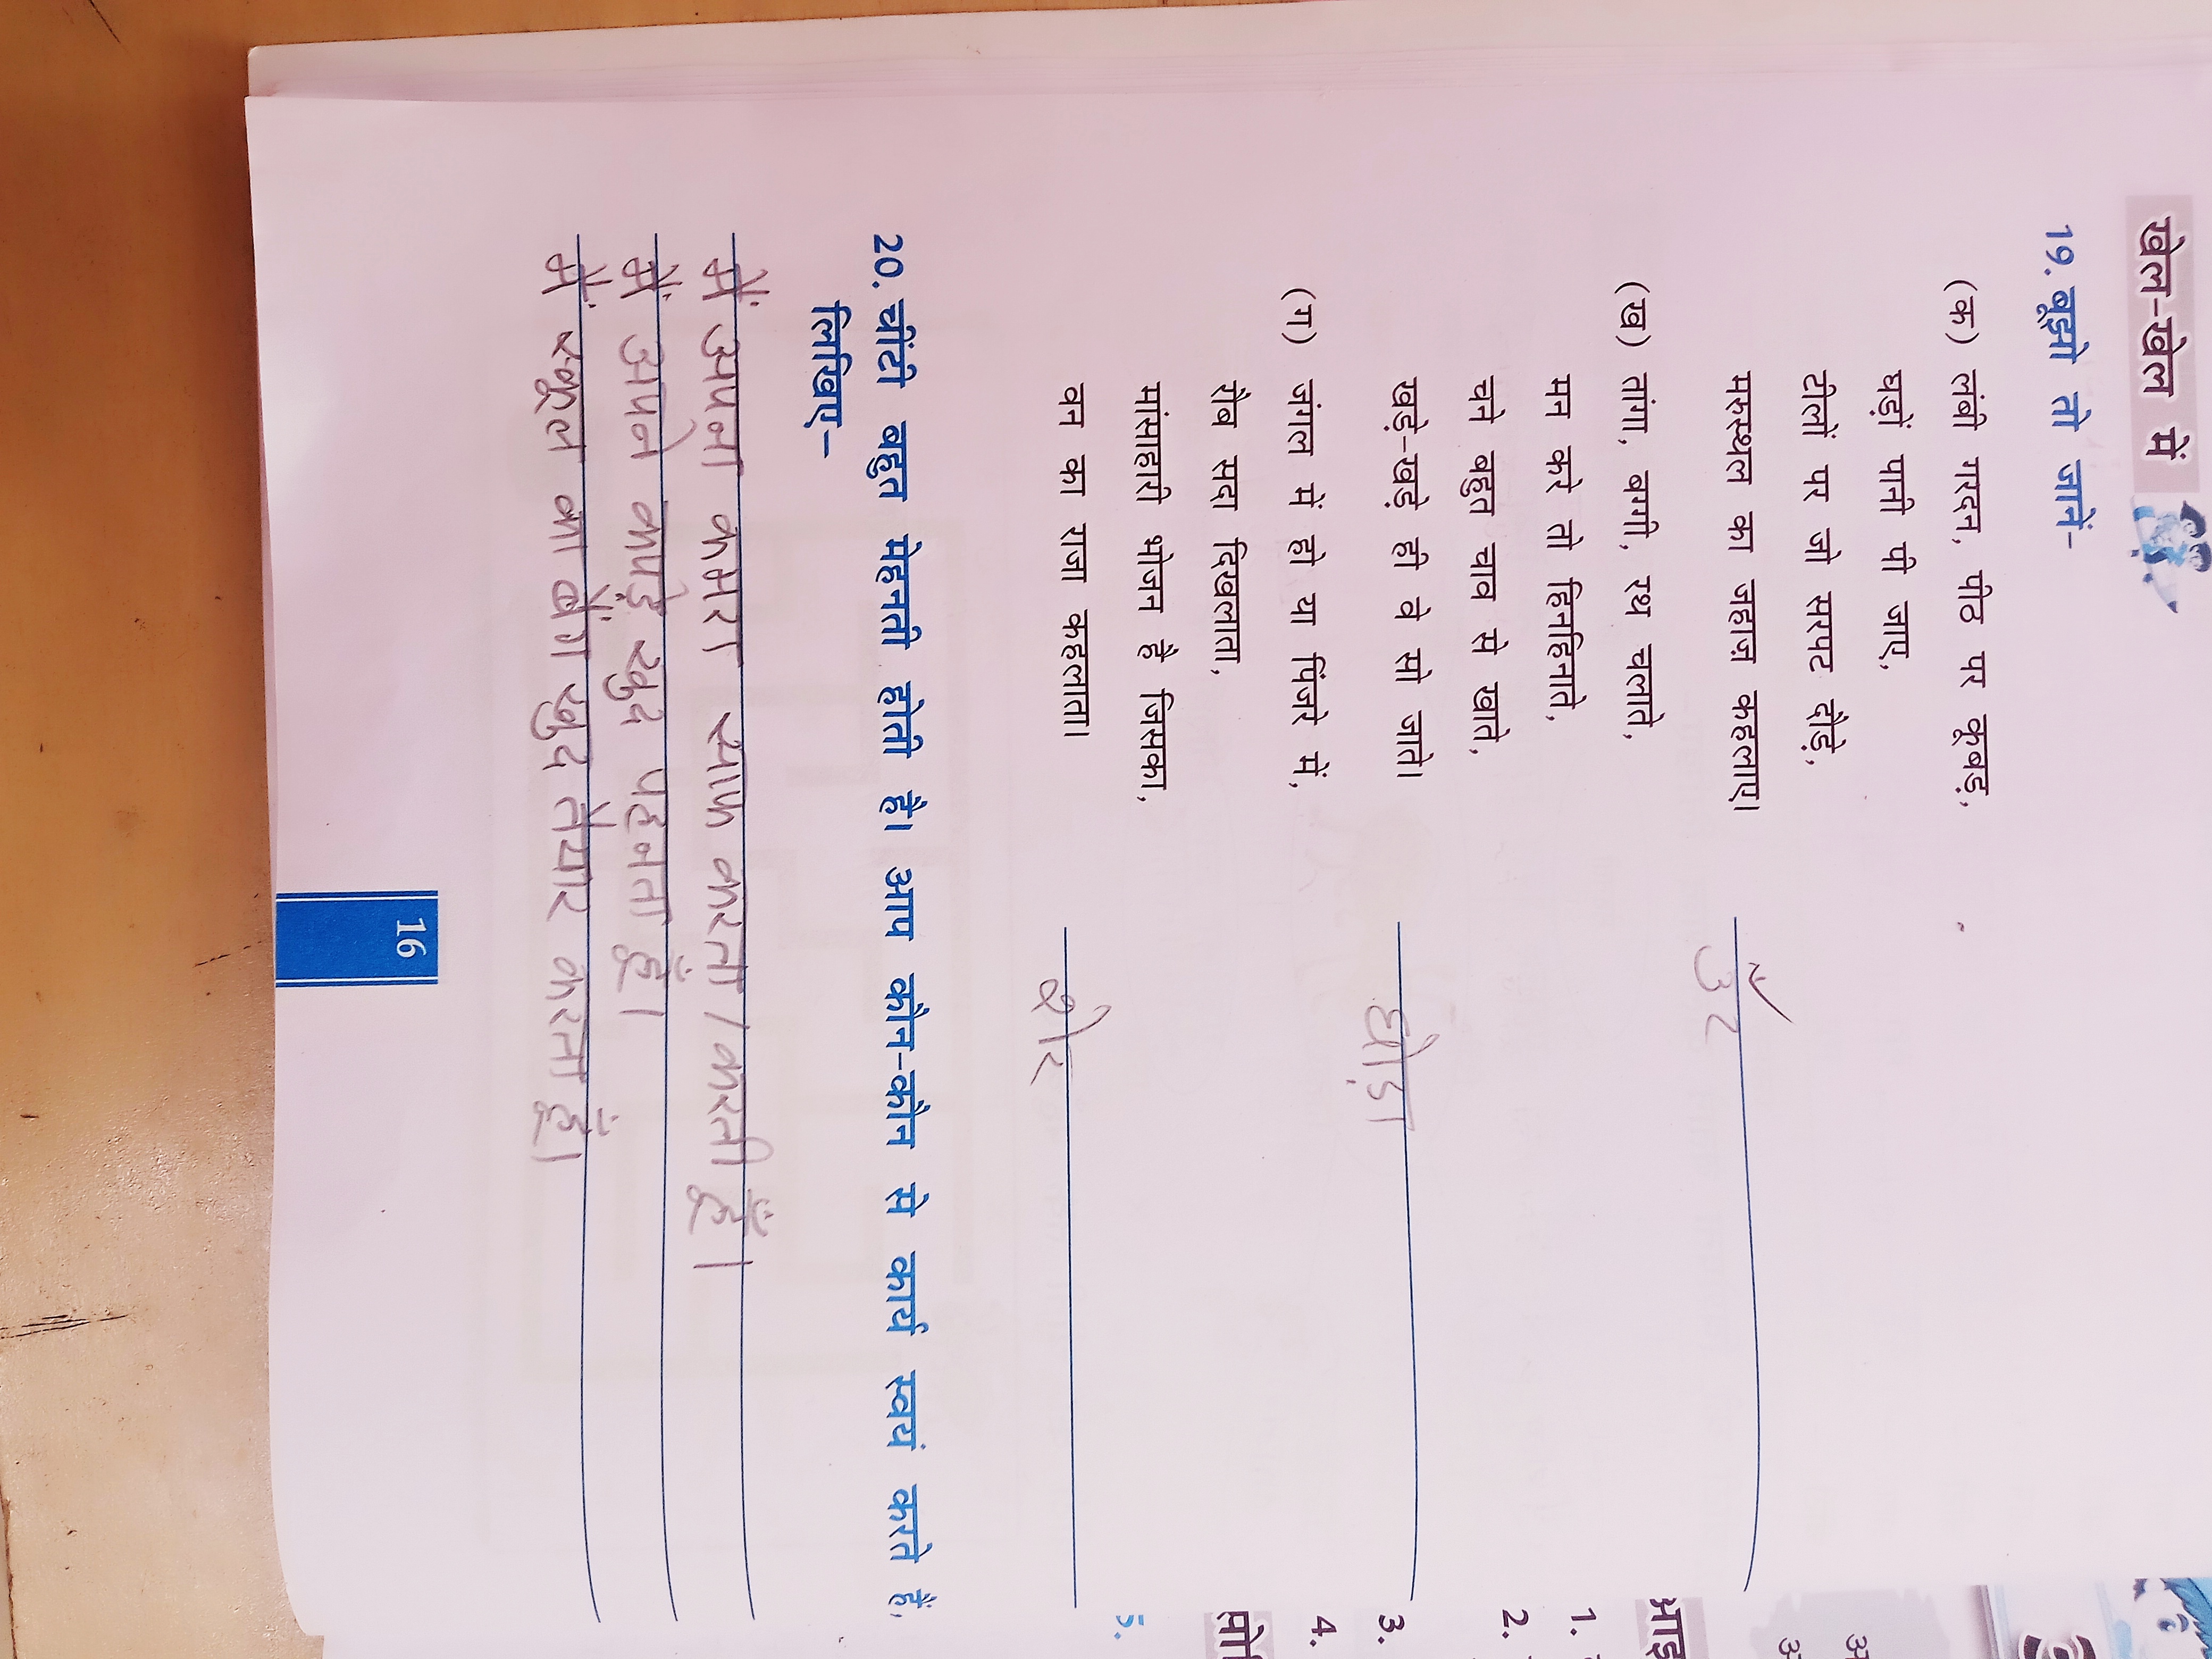 खेल-खेल में
19. बूझो तो जानें-
(क) लंबी गरदन, पीठ पर कूबड़,
घड़ों पानी पी जाए,
टीलों पर जो सरपट दौड़े,
मरुस्थल का जहाज़ कहलाए।
ऊँट
(ख) तांगा, बग्गी, रथ चलाते,
मन करे तो हिनहिनाते,
चने बहुत चाव से खाते,
खड़े-खड़े ही वे सो जाते।
घोड़ा
(ग) जंगल में हो या पिंजरे में,
रौब सदा दिखलाता,
मांसाहारी भोजन है जिसका,
वन का राजा कहलाता।
शेर
20. चींटी बहुत मेहनती होती है। आप कौन-कौन से कार्य स्वयं करते हैं,
लिखिए-
मैं अपना कमरा साफ करता / करती हूँ।
मैं अपने कपड़े खुद पहनता हूँ।
मैं स्कूल का बैग खुद तैयार करता हूँ।
16
1.
2.
3.
4.
5.